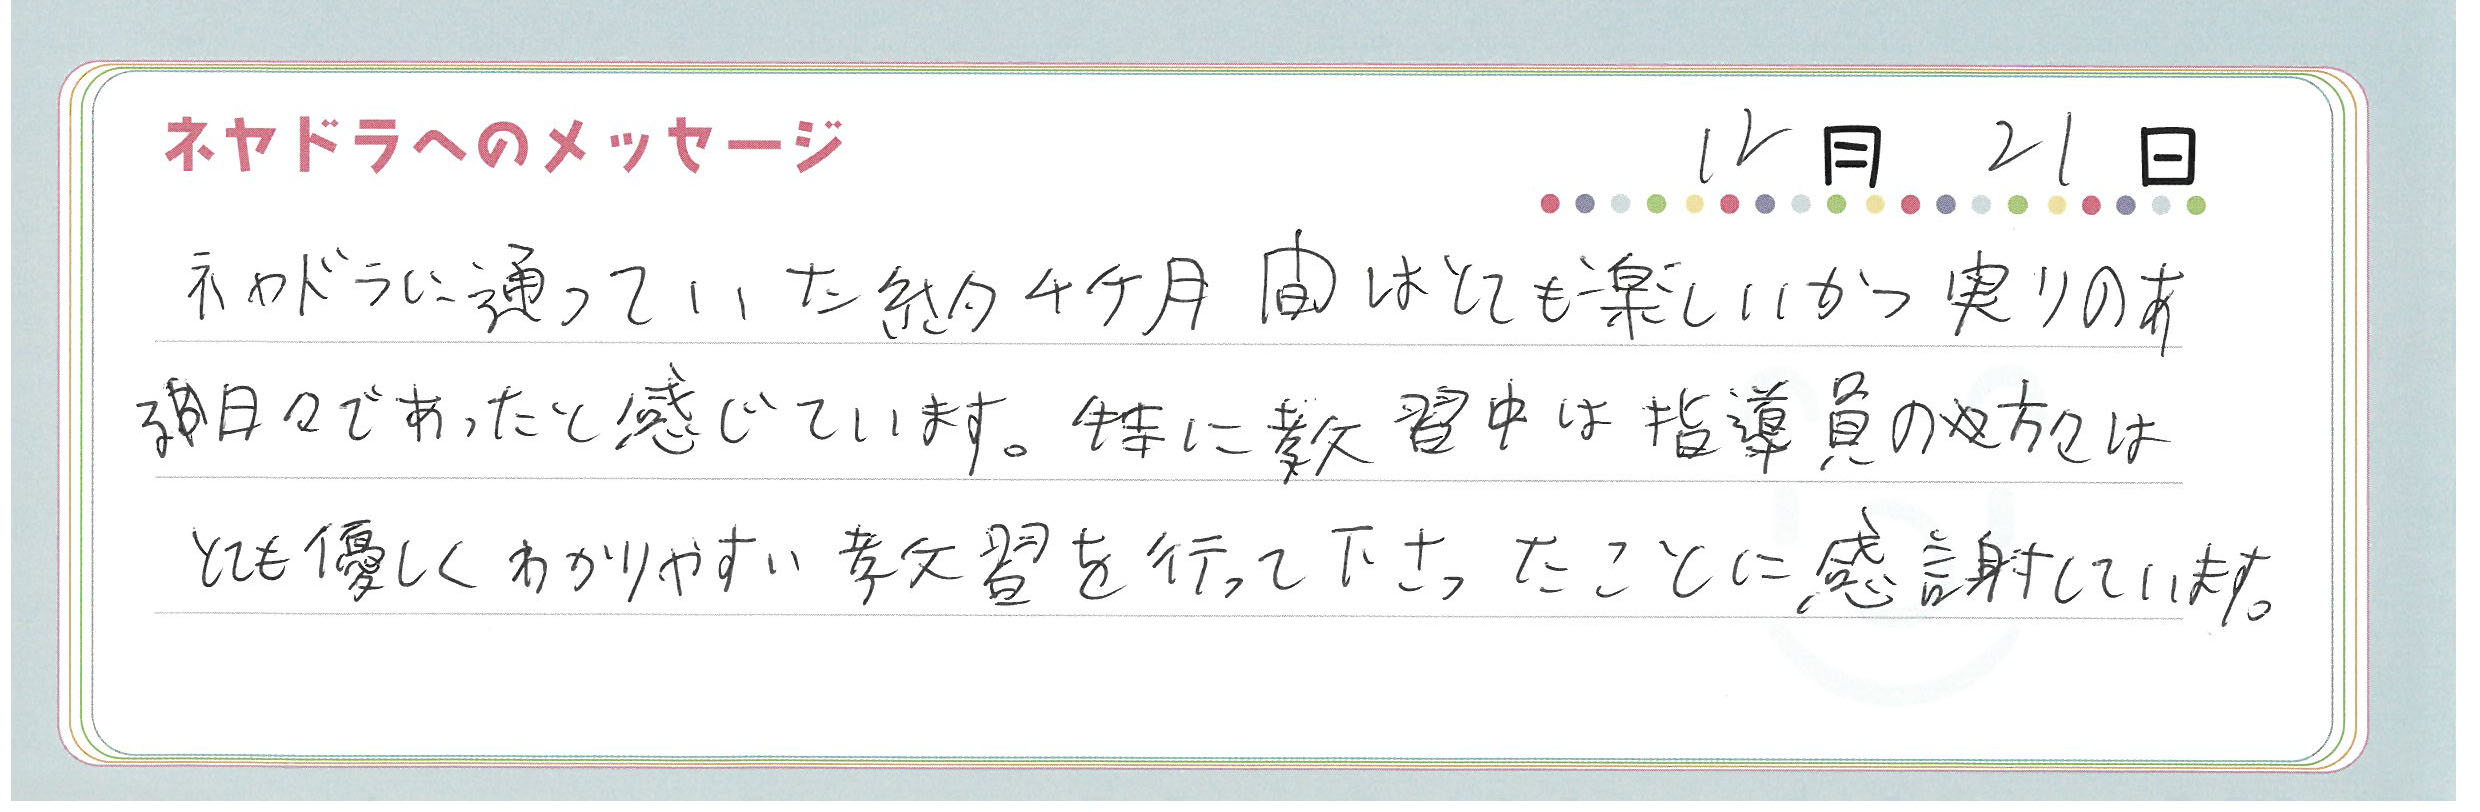 ネヤドラへのメッセージ
12月 21日
ネヤドラに通っていた約4ケ月間はとても楽しいかつ実りのあ
る日々であったと感じています。特に教習中は指導員の方々は
とても優しくわかりやすい教習を行って下さったことに感謝しています。